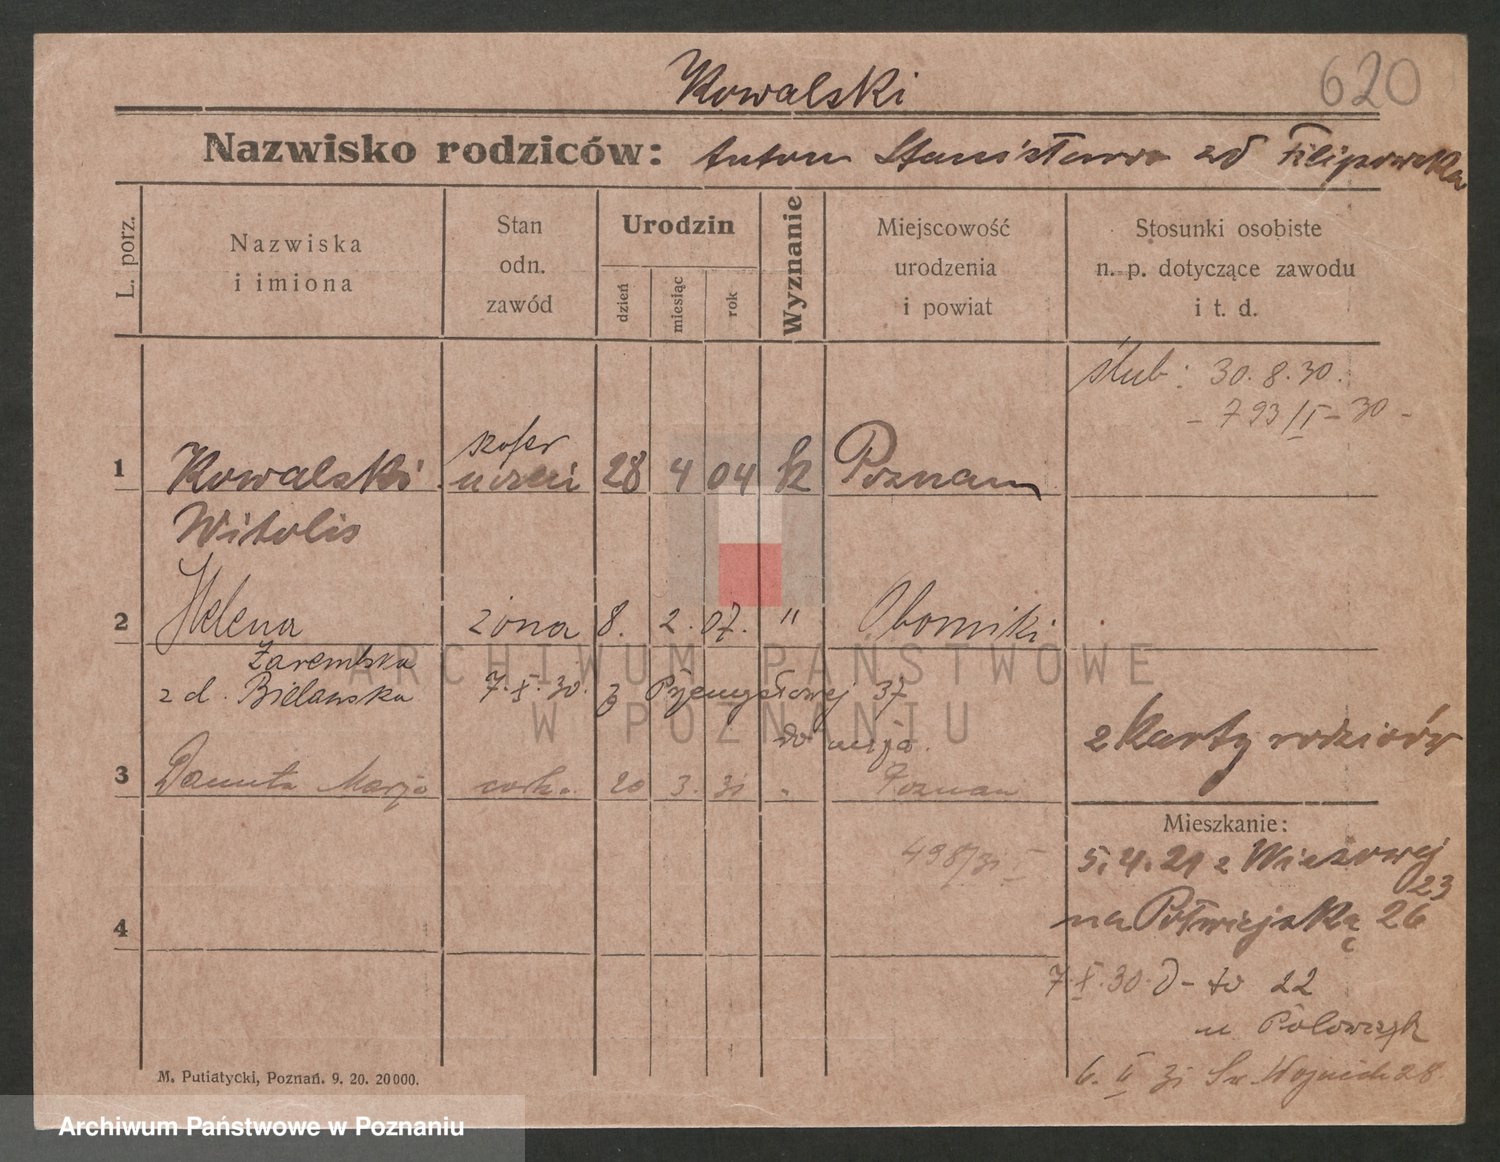 620
Kowalski
Nazwisko rodziców: Antoni Stanisława zd Filipowska
L. porz.
Nazwiska
i imiona
Stan
odn.
zawód
Urodzin
dzień
miesiąc
rok
Wyznanie
Miejscowość
urodzenia
i powiat
Stosunki osobiste
n. p. dotyczące zawodu
i t. d.
ślub: 30.8.30.
- 793/I - 30 -
1 Kowalski uczeń 28 4 04 k Poznań
Witolis
2 Helena żona 8. 2. 07. " Oborniki
Zarembska
z d. Bielawska 7.X.30. z Przemysłowej 37
do męża.
z karty rodziców
3 Danuta Marja córka 20 3. 31 " Poznań
Mieszkanie:
498/31 I
5.4.21 z Wieżowej
23
na Półwiejską 26
4
7.X.30. D- to 22
u
6. II 31 Św. Wojciech 28
M. Putiatycki, Poznań. 9. 20. 20000.
ARCHIWUM PAŃSTWOWE
W POZNANIU
Archiwum Państwowe w Poznaniu